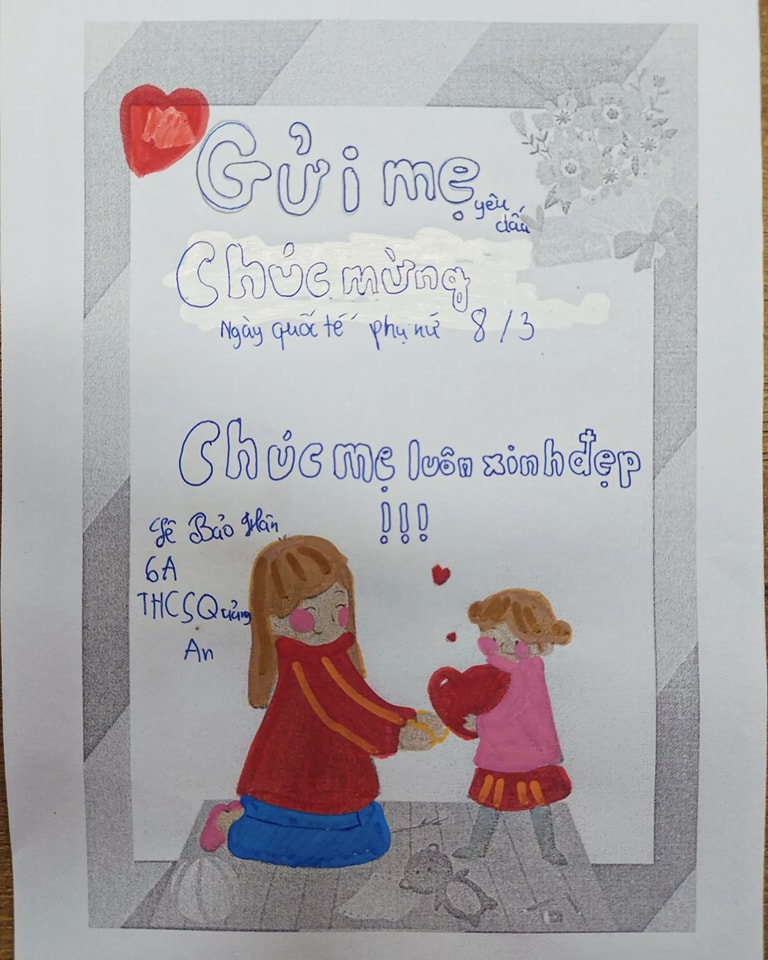 Gửi mẹ yêu dấu
Chúc mừng
Ngày quốc tế phụ nữ 8/3
Chúc mẹ luôn xinh đẹp
!!!
Lê Bảo Hân
6A
THCS Quảng
An